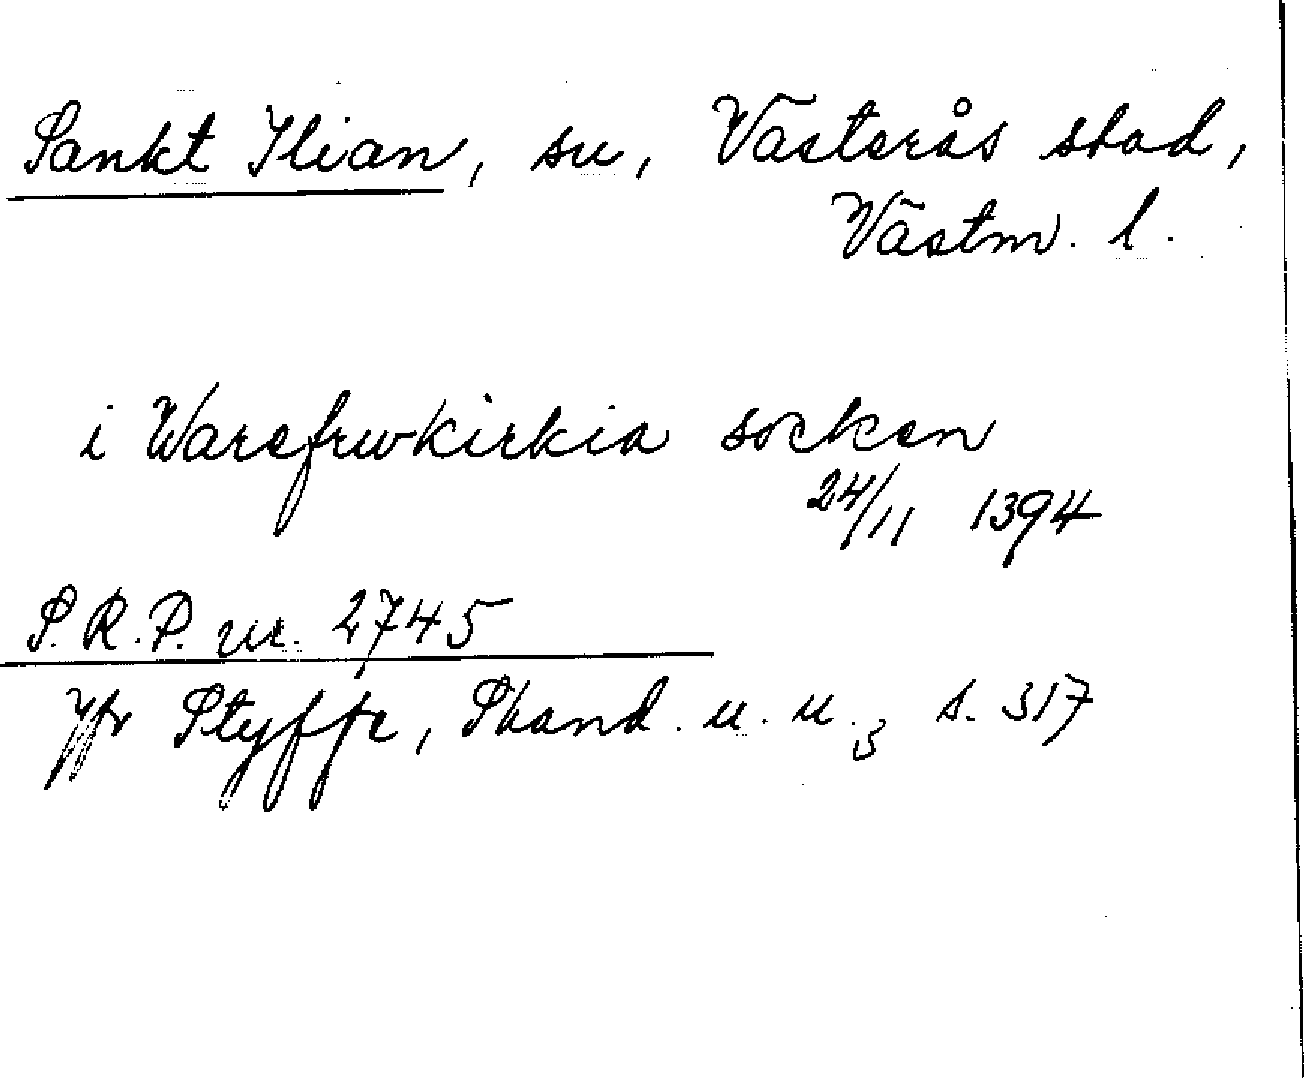 Sankt Ilian, sn, Västerås stad,
Västm. l.
i Warefrwkirkia socken
24/11 1394
S.R.P. nr. 2745
Jfr Styffe, Skand. u. u.3 s. 317